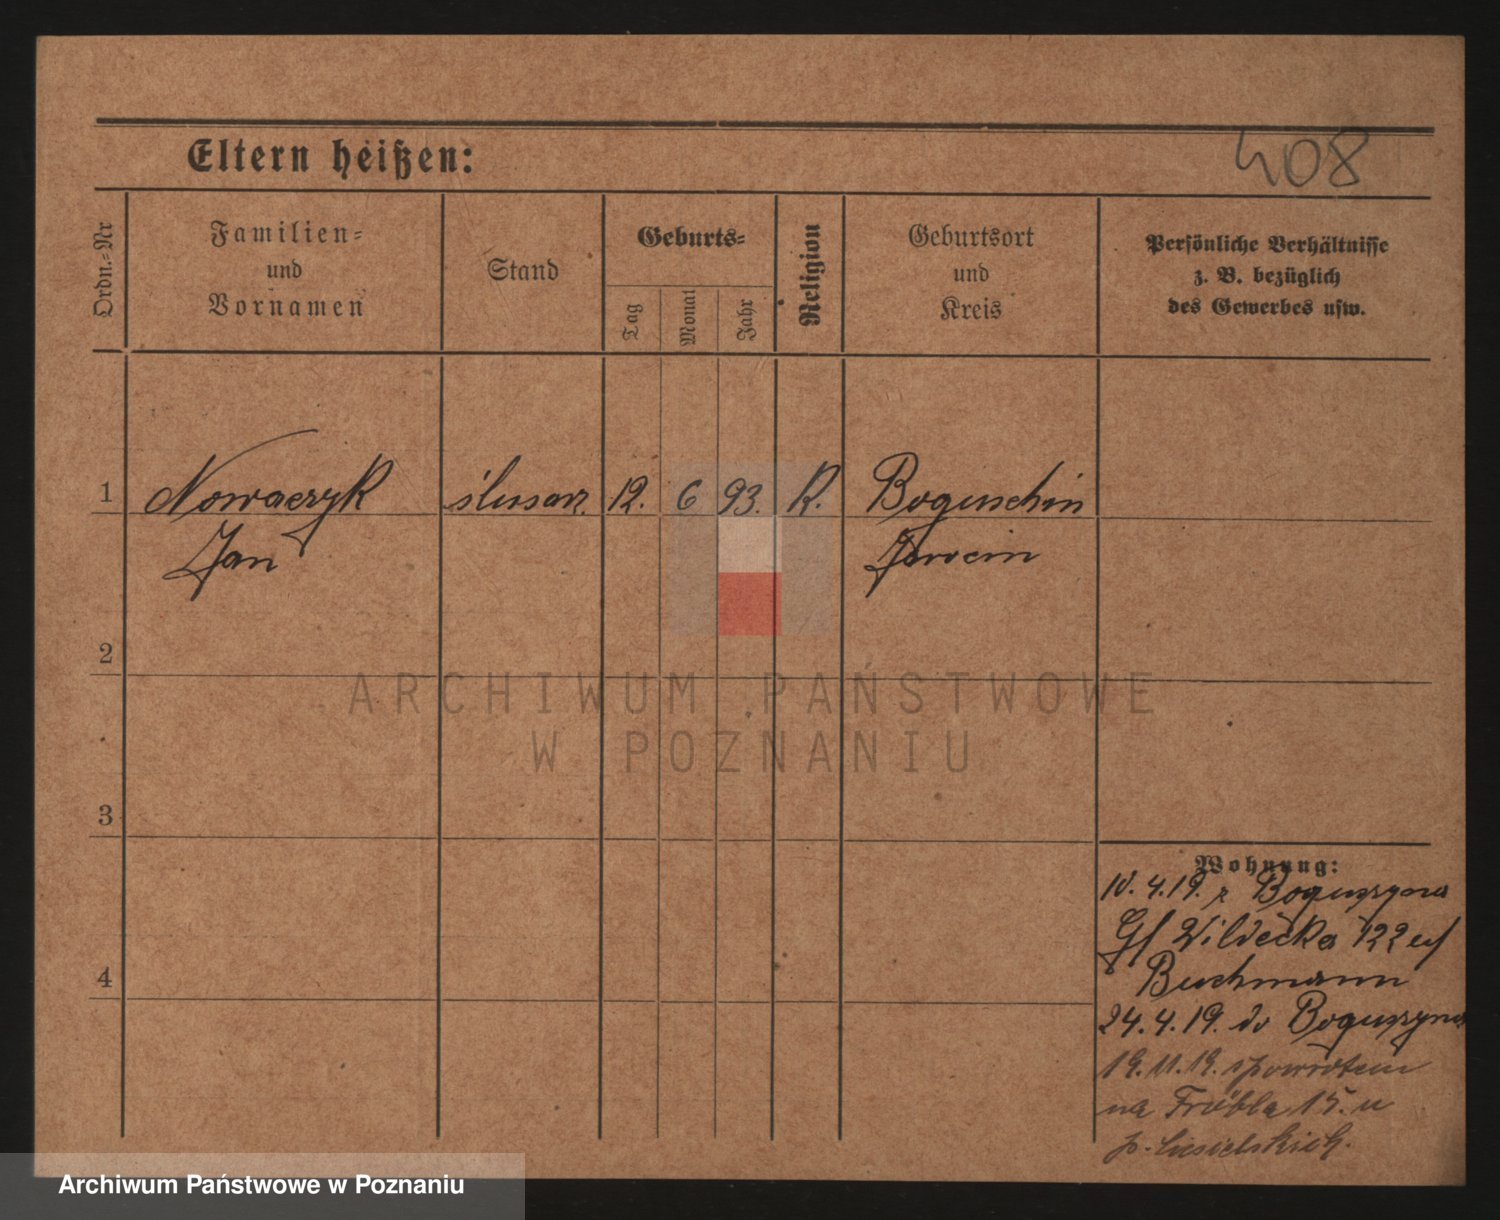 Eltern heißen:
408
Ordn.-Nr
Familien-
und
Vornamen
Stand
Geburts-
Tag
Monat
Jahr
Religion
Geburtsort
und
Kreis
Persönliche Verhältnisse
z. B. bezüglich
des Gewerbes usw.
1
Nowaczyk ślusarz. 12. 6 93. K. Boguschin
Jan Jarocin
2
ARCHIWUM PAŃSTWOWE
W POZNANIU
3
Wohnung:
10. 4.19. z Boguszyna
Gł Wildecka 122 u/
Buchmann
24.4.19. do Boguszyna
19.11.19. spowrotem
na Fröbla 15. u
p.
4
Archiwum Państwowe w Poznaniu